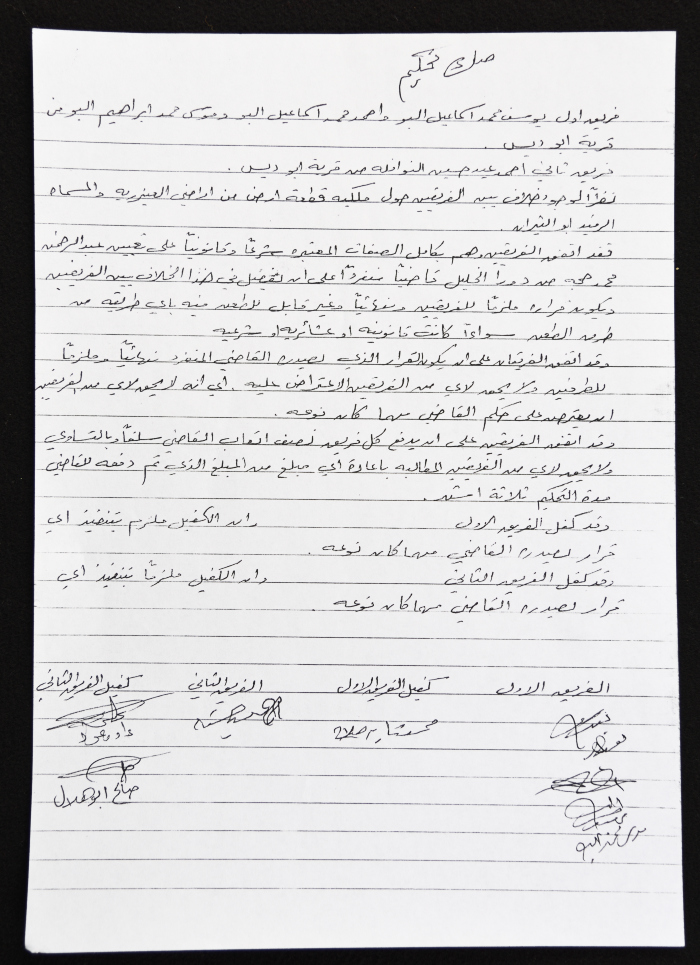 صك تحكيم
فريق اول يوسف محمد اسماعيل البو واحمد محمد اسماعيل البو وموسى محمد ابراهيم البو من
قرية ابو ديس .
فريق ثاني احمد عيد حسين النوافله من قرية ابو ديس .
نظراً لوجود خلاف بين الفريقين حول ملكيه قطعة ارض من اراضي العيزريه والمسماه
ابو النيران .
فقد اتفق الفريقين وهم بكامل الصفات المعتبره شرعاً وقانونياً على تعيين عبد الرحمن
محمد من دورا الخليل قاضياً منفرداً على ان يفصل في هذا الخلاف بين الفريقين
ويكون قراره ملزماً للفريقين ونهائياً وغير قابل للطعن فيه باي طريقه من
طرق الطعن سواءاً كانت قانونيه او عشائريه او شرعيه
وقد اتفق الفريقان على ان يكون القرار الذي يصدره القاضي المنفرد نهائياً وملزماً
للطرفين ولا يحق لاي من الفريقين الاعتراض عليه . اي انه لا يحق لاي من الفريقين
ان يعترض على حكم القاضي مهما كان نوعه .
وقد اتفق الفريقين على ان يدفع كل فريق نصف اتعاب القاضي سلفاً وبالتساوي
ولا يحق لاي من الفريقين المطالبه باعادة اي مبلغ من المبلغ الذي تم دفعه للقاضي
مدة التحكيم ثلاثة اشهر .
وقد كفل الفريق الاول وان الكفيل ملزم بتنفيذ اي
قرار يصدره القاضي مهما كان نوعه .
وقد كفل الفريق الثاني وان الكفيل ملزماً بتنفيذ اي
قرار يصدره القاضي مهما كان نوعه .
الفريق الاول كفيل الفريق الاول الفريق الثاني كفيل الفريق الثاني
صالح ابو هلال